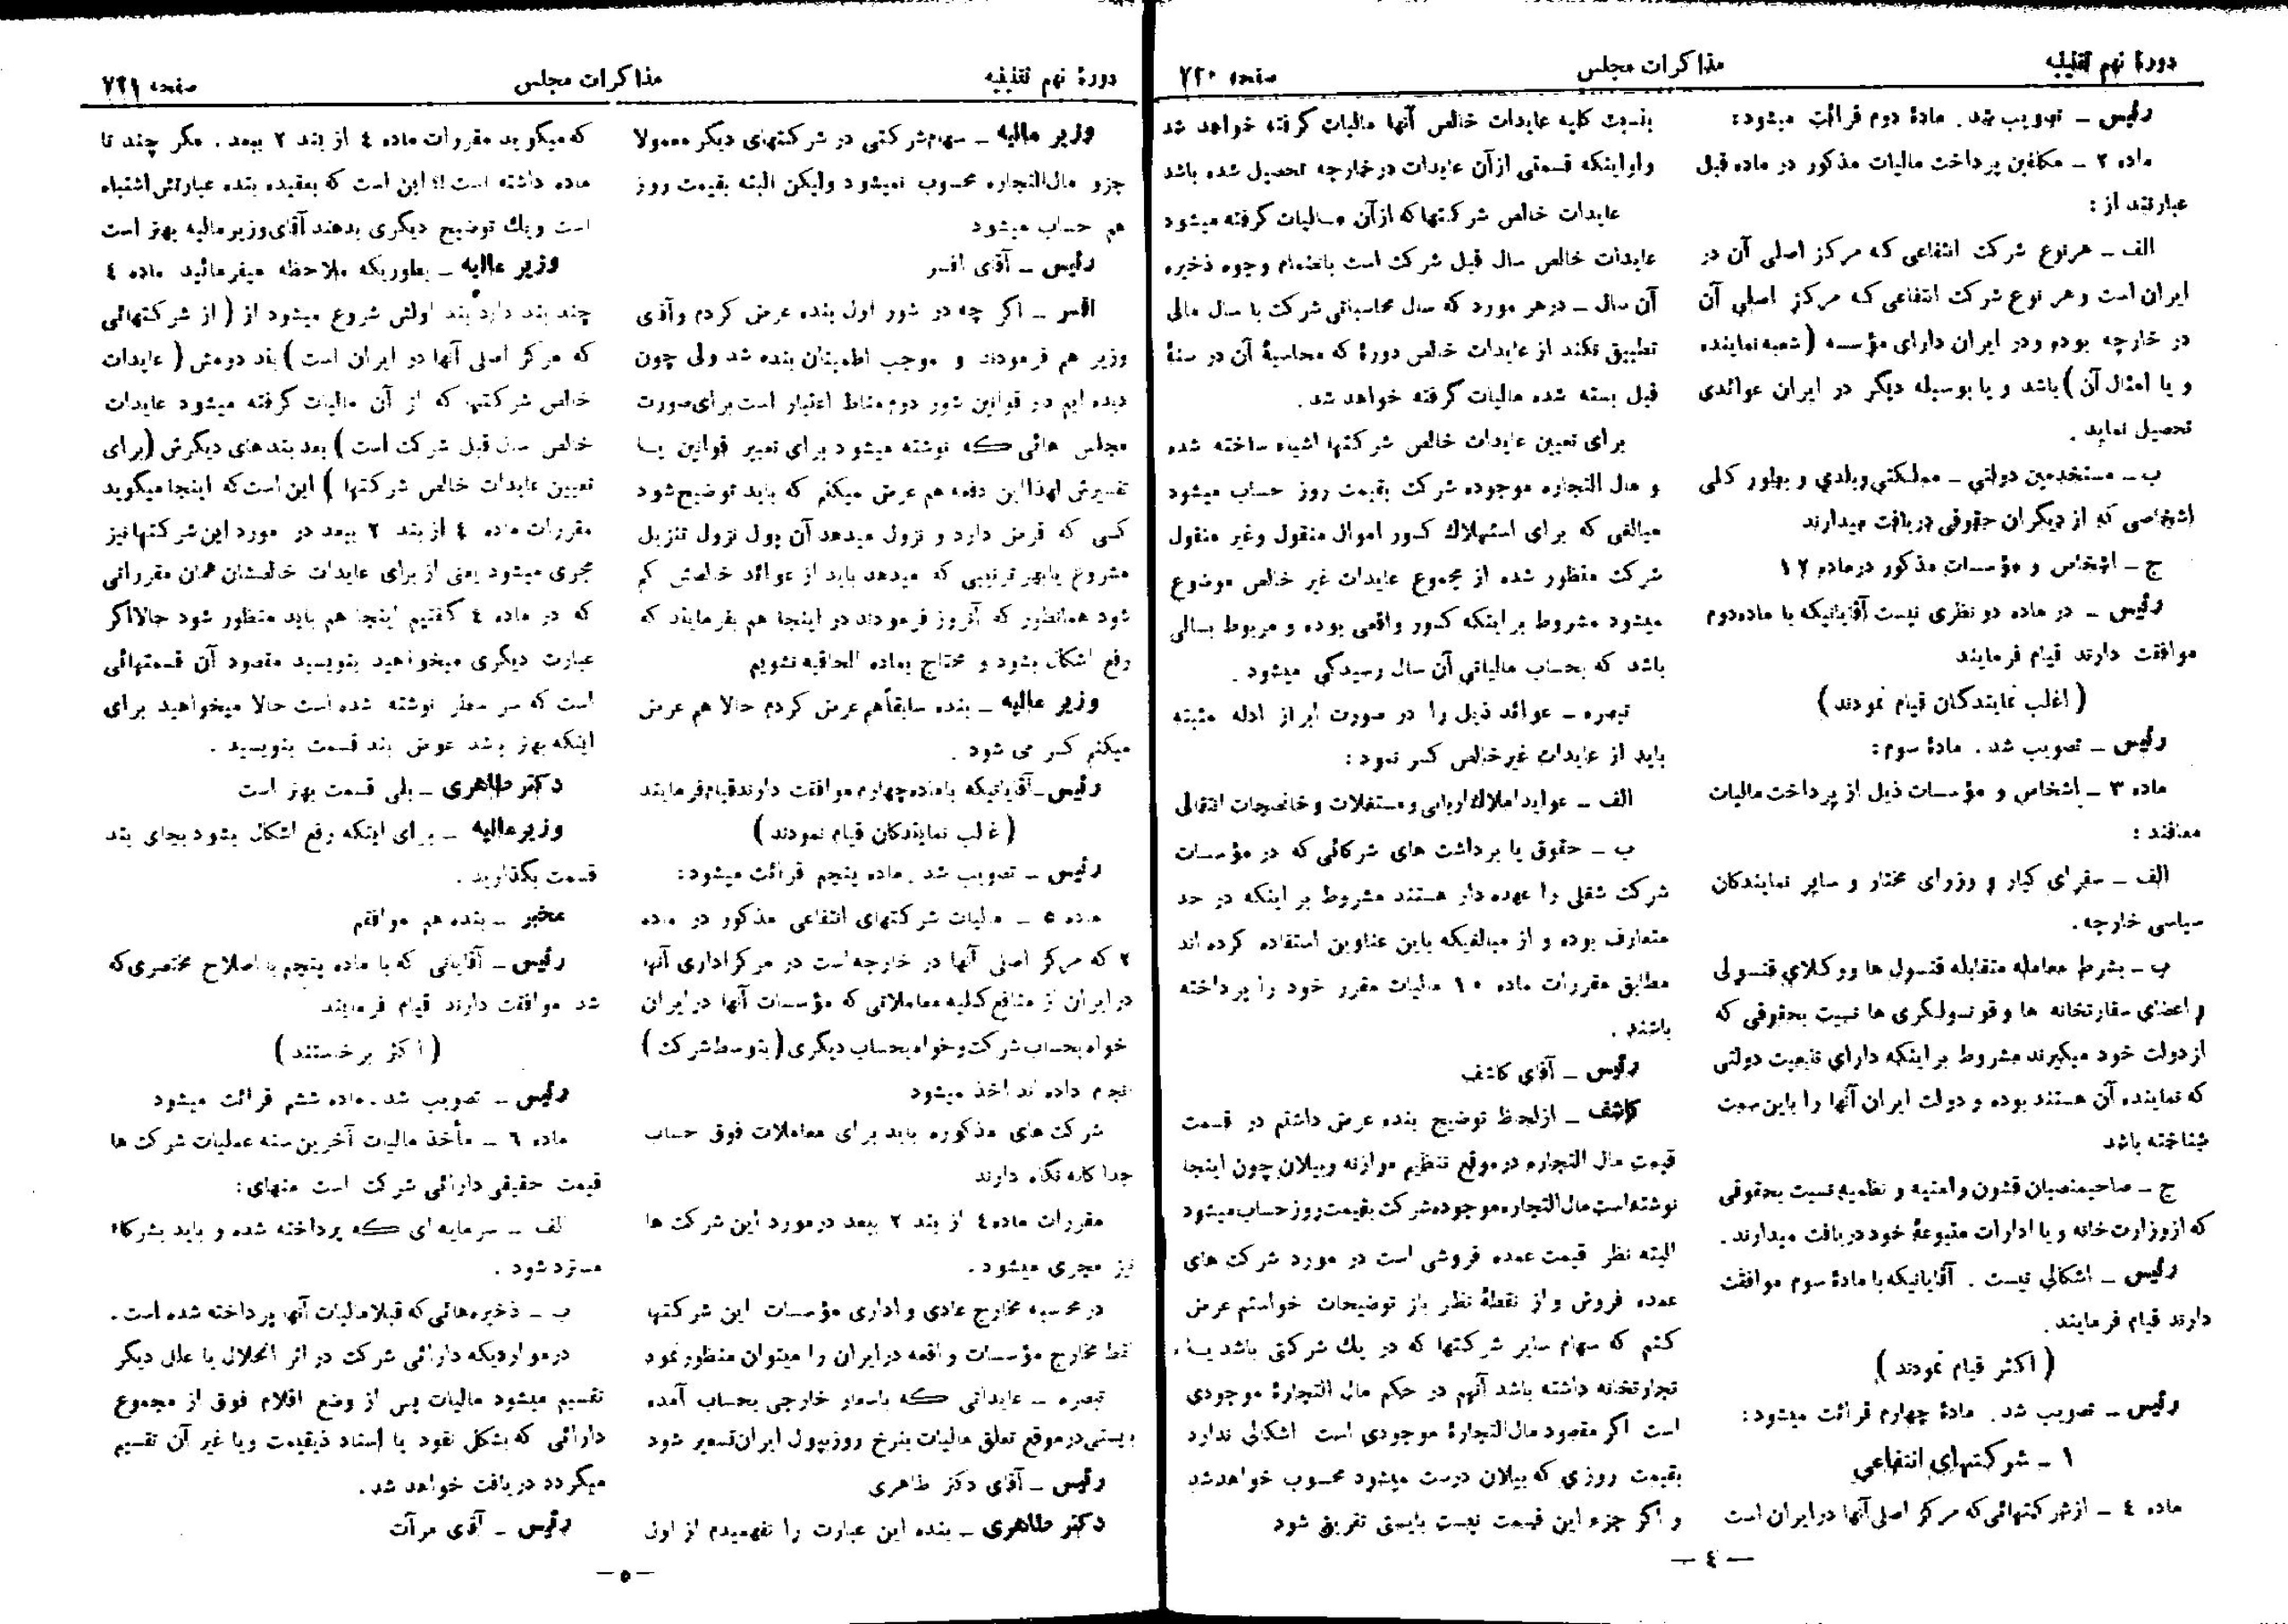 دورهٔ نهم تقنینیه
مذاکرات مجلس
صفحه ۷۲۰
رئیس ـ تصویب شد. مادهٔ دوم قرائت میشود:
ماده ۲ ـ مکلفین پرداخت مالیات مذکور در ماده قبل
عبارتند از:
الف ـ هر نوع شرکت انتفاعی که مرکز اصلی آن در
ایران است و هر نوع شرکت انتفاعی که مرکز اصلی آن
در خارجه بوده و در ایران دارای مؤسسه (شعبه نماینده
و یا امثال آن) باشد و یا بوسیله دیگر در ایران عوائدی
تحصیل نماید.
ب ـ مستخدمین دولتی ـ مملکتی و بلدی و بطور کلی
اشخاصی که از دیگران حقوقی دریافت میدارند
ج ـ اشخاص و مؤسسات مذکور در ماده ۱۲
رئیس ـ در ماده دو نظری نیست آقایانیکه با ماده دوم
موافقت دارند قیام فرمایند
(اغلب نمایندگان قیام نمودند)
رئیس ـ تصویب شد. مادهٔ سوم:
ماده ۳ ـ اشخاص و مؤسسات ذیل از پرداخت مالیات
معافند:
الف ـ سفرای کبار و وزرای مختار و سایر نمایندگان
سیاسی خارجه.
ب ـ بشرط معامله متقابله قنسول ها و وکلای قنسولی
و اعضای سفارتخانه ها و قونسولگری ها نسبت بحقوقی که
از دولت خود میگیرند مشروط بر اینکه دارای تابعیت دولتی
که نماینده آن هستند بوده و دولت ایران آنها را باین سمت
شناخته باشد
ج ـ صاحبمنصبان قشون و امنیه و نظمیه نسبت بحقوقی
که از وزارت خانه و یا ادارات متبوعهٔ خود دریافت میدارند.
رئیس ـ اشکالی نیست. آقایانیکه با مادهٔ سوم موافقت
دارند قیام فرمایند.
(اکثر قیام نمودند)
رئیس ـ تصویب شد. مادهٔ چهارم قرائت میشود:
۱ ـ شرکتهای انتفاعی
ماده ٤ ـ از شرکتهائی که مرکز اصلی آنها در ایران است
بنسبت کلیه عایدات خالص آنها مالیات گرفته خواهد شد
ولو اینکه قسمتی از آن عایدات در خارجه تحصیل شده باشد
عایدات خالص شرکتها که از آن مالیات گرفته میشود
عایدات خالص سال قبل شرکت است بانضمام وجوه ذخیره
آن سال ـ در هر مورد که سال محاسباتی شرکت با سال مالی
تطبیق نکند از عایدات خالص دورهٔ که محاسبهٔ آن در سنهٔ
قبل بسته شده مالیات گرفته خواهد شد.
برای تعیین عایدات خالص شرکتها اشیاء ساخته شده
و مال التجاره موجوده شرکت بقیمت روز حساب میشود
مبالغی که برای استهلاك کسور اموال منقول و غیر منقول
شرکت منظور شده از مجموع عایدات غیر خالص موضوع
میشود مشروط بر اینکه کسور واقعی بوده و مربوط بسالی
باشد که بحساب مالیاتی آن سال رسیدگی میشود.
تبصره ـ عوائد ذیل را در صورت ابراز ادله مثبته
باید از عایدات غیر خالص کسر نمود:
الف ـ عواید املاك اربابی و مستغلات و خالصجات انتقالی
ب ـ حقوق یا برداشت های شرکائی که در مؤسسات
شرکت شغلی را عهده دار هستند مشروط بر اینکه در حد
متعارف بوده و از مبالغیکه باین عناوین استفاده کرده اند
مطابق مقررات ماده ۱۰ مالیات مقرر خود را پرداخته
باشند.
رئیس ـ آقای کاشف
کاشف ـ از لحاظ توضیح بنده عرض داشتم در قسمت
قیمت مال التجاره در موقع تنظیم موازنه و بیلان چون اینجا
نوشته است مال التجاره موجوده شرکت بقیمت روز حساب میشود
البته نظر قیمت عمده فروشی است در مورد شرکت های
عمده فروش و از نقطهٔ نظر باز توضیحات خواستم عرض
کنم که سهام سایر شرکتها که در یك شرکتی باشد یا
تجارتخانه داشته باشد آنهم در حکم مال التجارهٔ موجودی
است اگر مقصود مال التجارهٔ موجودی است اشکالی ندارد
بقیمت روزی که بیلان درست میشود محسوب خواهد شد
و اگر جزء این قسمت نیست بایستی تفریق شود
ـ ٤ ـ
دورهٔ نهم تقنینیه
مذاکرات مجلس
صفحه ۷۲۱
وزیر مالیه ـ سهام شرکتی در شرکتهای دیگر معمولا
جزو مال التجاره محسوب نمیشود ولیکن البته بقیمت روز
هم حساب میشود
رئیس ـ آقای افسر
افسر ـ اگر چه در شور اول بنده عرض کردم و آقای
وزیر هم فرمودند و موجب اطمینان بنده شد ولی چون
دیده ایم در قوانین شور دوم مناط اعتبار است برای صورت
مجلس هائی که نوشته میشود برای تعبیر قوانین یا
تفسیرش لهذا این دفعه هم عرض میکنم که باید توضیح شود
کسی که قرض دارد و نزول میدهد آن پول نزول تنزیل
مشروع یا بهر ترتیبی که میدهد باید از عوائد خالصش کم
شود همانطور که آنروز فرمودند در اینجا هم بفرمایند که
رفع اشکال بشود و محتاج بماده الحاقیه نشویم
وزیر مالیه ـ بنده سابقاً هم عرض کردم حالا هم عرض
میکنم کسر می شود.
رئیس ـ آقایانیکه با ماده چهارم موافقت دارند قیام فرمایند
(غالب نمایندگان قیام نمودند)
رئیس ـ تصویب شد. ماده پنجم قرائت میشود:
ماده ٥ ـ مالیات شرکتهای انتفاعی مذکور در ماده
۲ که مرکز اصلی آنها در خارجه است در مرکز اداری آنها
در ایران از منافع کلیه معاملاتی که مؤسسات آنها در ایران
خواه بحساب شرکت و خواه بحساب دیگری (بتوسط شرکت)
انجام داده اند اخذ میشود
شرکت های مذکوره باید برای معاملات فوق حساب
جداگانه نگاه دارند
مقررات ماده ٤ از بند ۲ ببعد در مورد این شرکت ها
نیز مجری میشود.
در محاسبه مخارج عادی و اداری مؤسسات این شرکتها
فقط مخارج مؤسسات واقعه در ایران را میتوان منظور نمود
تبصره ـ عایداتی که باسعار خارجی بحساب آمده
بایستی در موقع تعلق مالیات بنرخ روز بپول ایران تسعیر شود
رئیس ـ آقای دکتر طاهری
دکتر طاهری ـ بنده این عبارت را نفهمیدم از اول
که میگوید مقررات ماده ٤ از بند ۲ ببعد. مگر چند تا
ماده داشته است؟ این است که بعقیده بنده عبارتش اشتباه
است و یك توضیح دیگری بدهند آقای وزیر مالیه بهتر است
وزیر مالیه ـ بطوریکه ملاحظه میفرمائید ماده ٤
چند بند دارد بند اولش شروع میشود از (از شرکتهائی
که مرکز اصلی آنها در ایران است) بند دومش (عایدات
خالص شرکتها که از آن مالیات گرفته میشود عایدات
خالص سال قبل شرکت است) بعد بندهای دیگرش (برای
تعیین عایدات خالص شرکتها) این است که اینجا میگوید
مقررات ماده ٤ از بند ۲ ببعد در مورد این شرکتها نیز
مجری میشود یعنی از برای عایدات خالصشان همان مقرراتی
که در ماده ٤ گفتیم اینجا هم باید منظور شود حالا اگر
عبارت دیگری میخواهید بنویسید مقصود آن قسمتهائی
است که سر سطر نوشته شده است حالا میخواهید برای
اینکه بهتر باشد عوض بند قسمت بنویسید.
دکتر طاهری ـ بلی قسمت بهتر است
وزیر مالیه ـ برای اینکه رفع اشکال بشود بجای بند
قسمت بگذارید.
مخبر ـ بنده هم موافقم
رئیس ـ آقایانی که با ماده پنجم با اصلاح مختصری که
شد موافقت دارند قیام فرمایند
(اکثر برخاستند)
رئیس ـ تصویب شد. ماده ششم قرائت میشود
ماده ٦ ـ مأخذ مالیات آخرین سنه عملیات شرکت ها
قیمت حقیقی دارائی شرکت است منهای:
الف ـ سرمایه ای که پرداخته شده و باید بشرکاء
مسترد شود.
ب ـ ذخیره هائی که قبلا مالیات آنها پرداخته شده است.
در مواردیکه دارائی شرکت در اثر انحلال یا علل دیگر
تقسیم میشود مالیات پس از وضع اقلام فوق از مجموع
دارائی که بشکل نقود یا اسناد ذیقیمت و یا غیر آن تقسیم
میگردد دریافت خواهد شد.
رئیس ـ آقای مرآت
ـ ٥ ـ